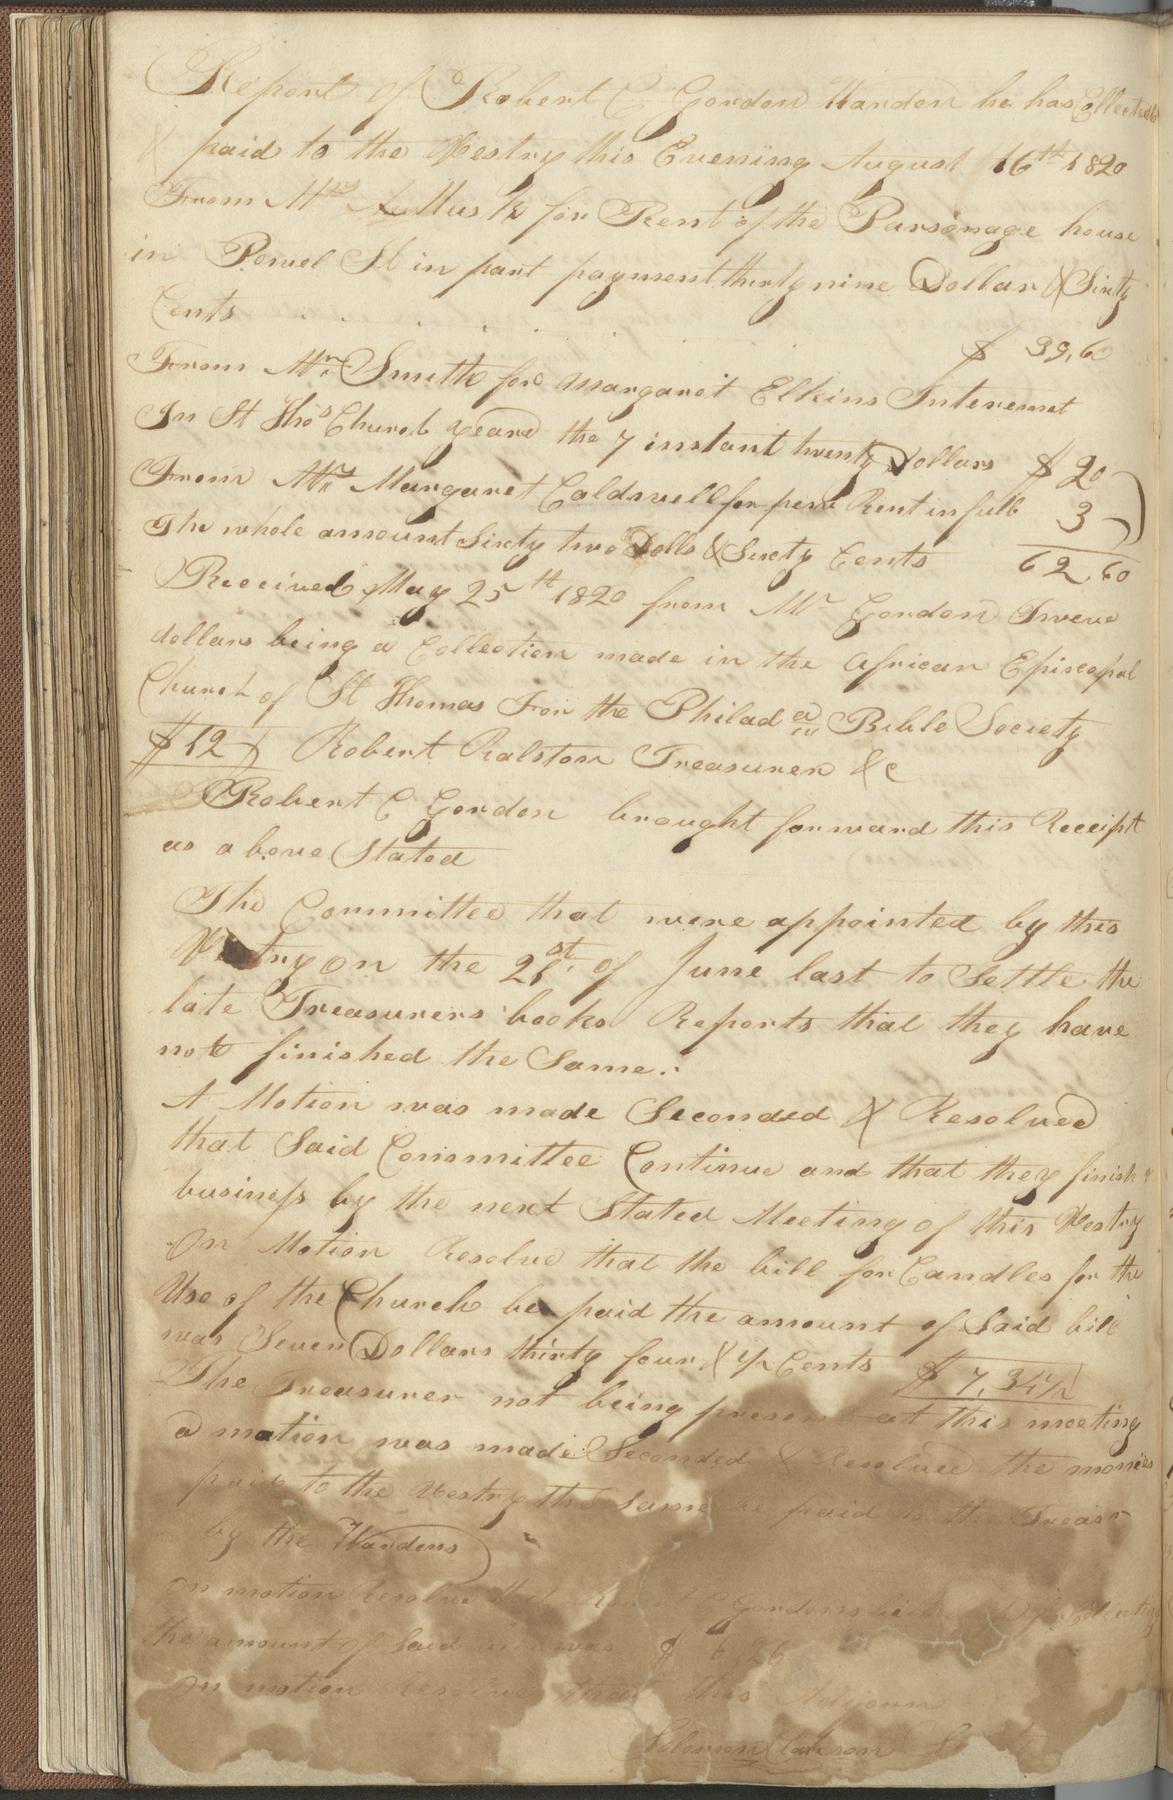 Report of Robert C Gordon Warden he has Collected
& paid to the Vestry this Evening August 16th 1820
From Mrs for Rent of the Parsonage house
in Powel St in part payment thirty nine Dollar & Sixty
Cents $ 39,60
From Mr. Smith for Margaret Elkins Interemet
In St Thos Church yeard the 7 instant twenty Dollars $ 20
From Margaret Caldwell for pew Rent in full 3
The whole amount Sixty two Dolls & Sixty Cents 62,60
Received May 25th 1820 from Mr Gordon Tweve
dollars being a Collection made in the African Episcopal
Church of St Thomas For the Philada Bible Society
$12 } Robert Ralston Treasurer &c
Robert C Gordon brought forward this Receipt
as above Stated
The Committee that were appointed by this
Vestry on the 21st. of June last to Settle the
late Treasurers books Reports that they have
not finished the Same.:
A Motion was made Seconded & Resolved
that Said Committee Continue and that they finish
business by the next Stated Meeting of this Vestry
On Motion Resolve that the bill for Candles for the
Use of the Church be paid the amount of Said bill
was Seven Dollars thirty four & 1/2 Cents $ 7,34 1/2
The Treasurer not being present at this meeting
a motion was made Seconded & Resolved the monies
paid to the Vestry the Same be paid to the Treasr
by the Wardens
On motion Resolve that C Gordons bill
the amount of Said bill was $ 6,26
On motion Resolve that this Adjourn
Solomon